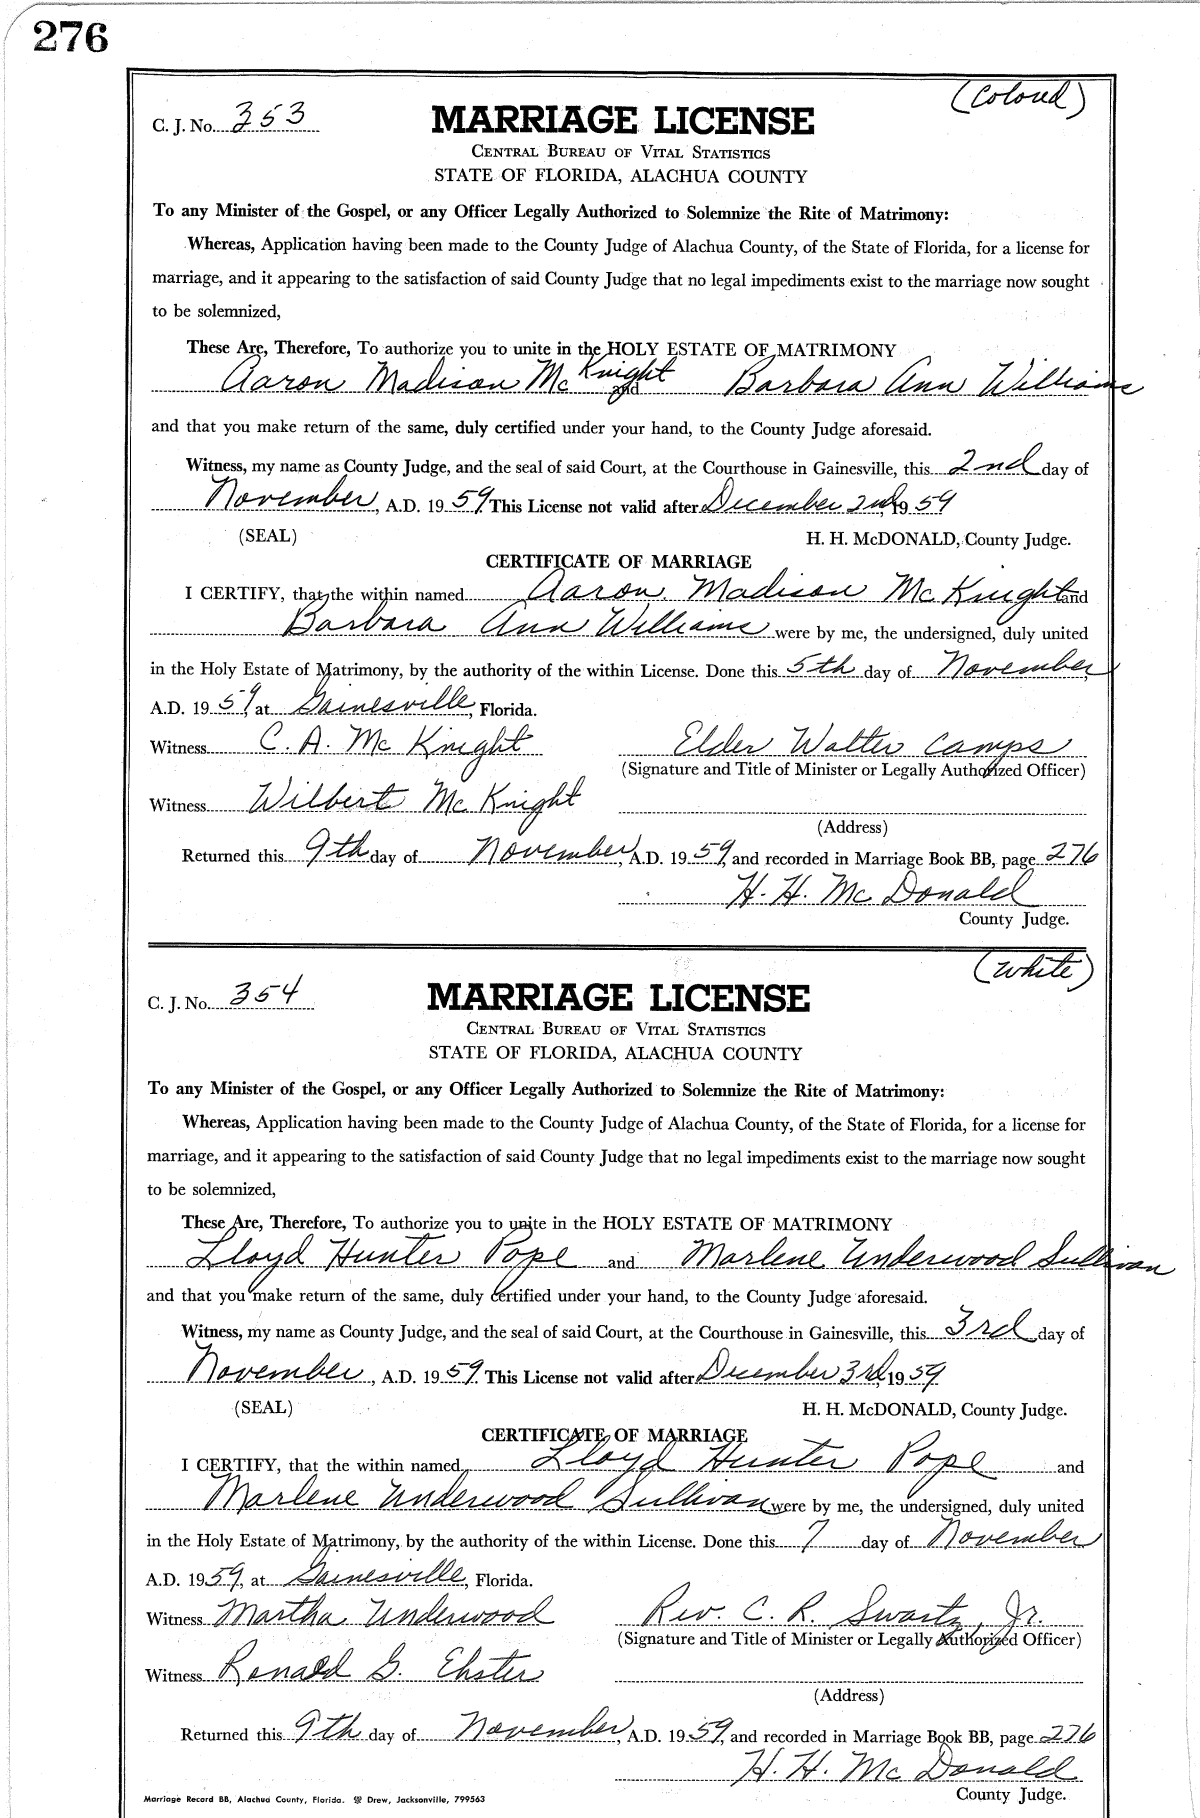 276
(Colored)
C. J. No. 353
MARRIAGE LICENSE
CENTRAL BUREAU OF VITAL STATISTICS
STATE OF FLORIDA, ALACHUA COUNTY
To any Minister of the Gospel, or any Officer Legally Authorized to Solemnize the Rite of Matrimony:
Whereas, Application having been made to the County Judge of Alachua County, of the State of Florida, for a license for
marriage, and it appearing to the satisfaction of said County Judge that no legal impediments exist to the marriage now sought
to be solemnized,
These Are, Therefore, To authorize you to unite in the HOLY ESTATE OF MATRIMONY
Aaron Madison McKnight and Barbara Ann Williams
and that you make return of the same, duly certified under your hand, to the County Judge aforesaid.
Witness, my name as County Judge, and the seal of said Court, at the Courthouse in Gainesville, this 2nd day of
November, A.D. 19 59 This License not valid after December 2nd, 19 59
(SEAL) H. H. McDONALD, County Judge.
CERTIFICATE OF MARRIAGE
I CERTIFY, that the within named Aaron Madison McKnight and
Barbara Ann Williams were by me, the undersigned, duly united
in the Holy Estate of Matrimony, by the authority of the within License. Done this 5th day of November,
A.D. 19 59, at Gainesville, Florida.
Witness C. A. McKnight Elder Walter Camps
(Signature and Title of Minister or Legally Authorized Officer)
Witness Wilbert McKnight
(Address)
Returned this 9th day of November, A.D. 19 59, and recorded in Marriage Book BB, page 276
H. H. McDonald
County Judge.
(White)
C. J. No. 354
MARRIAGE LICENSE
CENTRAL BUREAU OF VITAL STATISTICS
STATE OF FLORIDA, ALACHUA COUNTY
To any Minister of the Gospel, or any Officer Legally Authorized to Solemnize the Rite of Matrimony:
Whereas, Application having been made to the County Judge of Alachua County, of the State of Florida, for a license for
marriage, and it appearing to the satisfaction of said County Judge that no legal impediments exist to the marriage now sought
to be solemnized,
These Are, Therefore, To authorize you to unite in the HOLY ESTATE OF MATRIMONY
Lloyd Hunter Pope and Marlene Underwood Sullivan
and that you make return of the same, duly certified under your hand, to the County Judge aforesaid.
Witness, my name as County Judge, and the seal of said Court, at the Courthouse in Gainesville, this 3rd day of
November, A.D. 19 59. This License not valid after December 3rd, 19 59
(SEAL) H. H. McDONALD, County Judge.
CERTIFICATE OF MARRIAGE
I CERTIFY, that the within named Lloyd Hunter Pope and
Marlene Underwood Sullivan were by me, the undersigned, duly united
in the Holy Estate of Matrimony, by the authority of the within License. Done this 7 day of November
A.D. 19 59, at Gainesville, Florida.
Witness Martha Underwood Rev. C. R. Swartz, Jr.
(Signature and Title of Minister or Legally Authorized Officer)
Witness Ronald G. Ehster
(Address)
Returned this 9th day of November, A.D. 19 59, and recorded in Marriage Book BB, page 276
H. H. McDonald
County Judge.
Marriage Record BB, Alachua County, Florida. Drew, Jacksonville, 799563